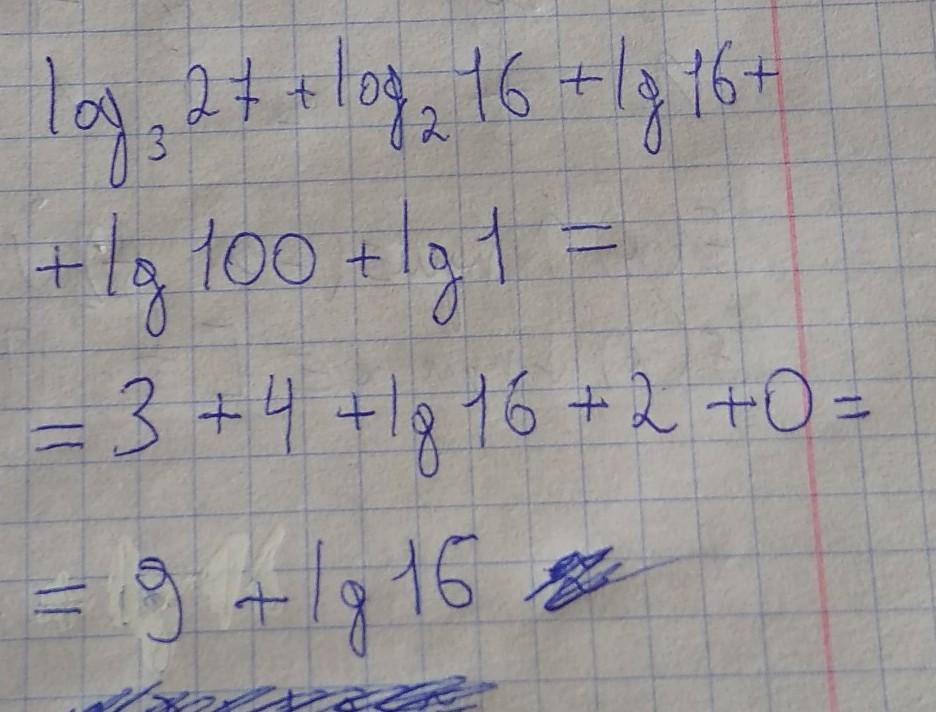 log₃ 27 + log₂ 16 + lg 16 +
+ lg 100 + lg 1 =
= 3 + 4 + lg 16 + 2 + 0 =
= 9 + lg 16